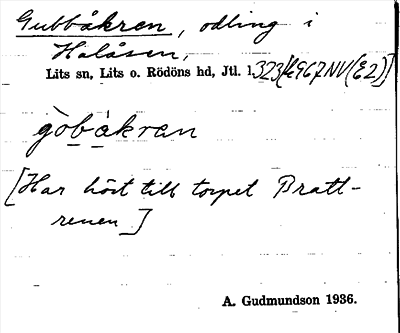 Gubbåkren, odling i
Halåsen,
Lits sn, Lits o. Rödöns hd, Jtl. l.
gòbåkran
[Har hört till torpet Bratt-
renen.]
A. Gudmundson 1936.